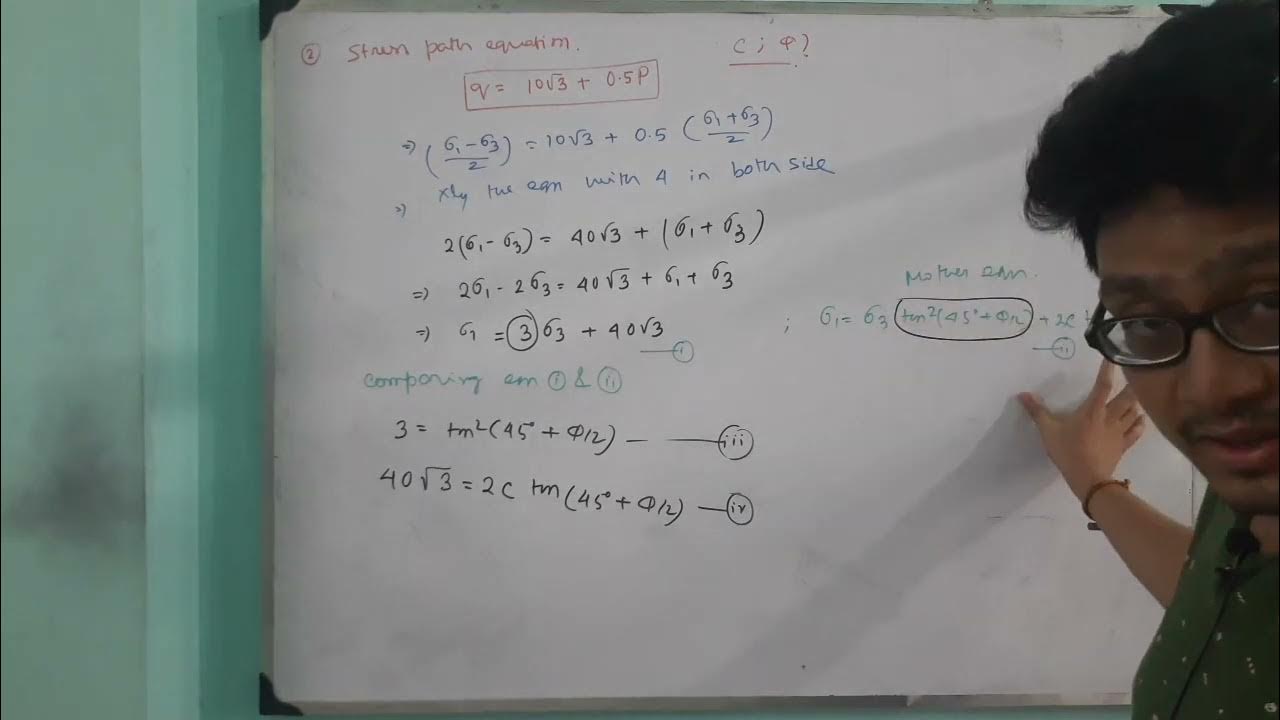 ② Stress path equation. C ; φ?
q = 10√3 + 0.5P
⇒ (σ₁-σ₃/2) = 10√3 + 0.5 (σ₁+σ₃/2)
⇒ xly the eqn with 4 in both side
2(σ₁-σ₃) = 40√3 + (σ₁+σ₃)
⇒ 2σ₁ - 2σ₃ = 40√3 + σ₁ + σ₃
⇒ σ₁ = 3σ₃ + 40√3
—ⓘ
Mother eqn.
; σ₁ = σ₃ tan²(45°+φ/2) + 2C
—ⓘⓘ
comparing eqn ⓘ & ⓘⓘ
3 = tan²(45° + φ/2) — —ⓘⓘⓘ
40√3 = 2C tan(45° + φ/2) —ⓘⓥ